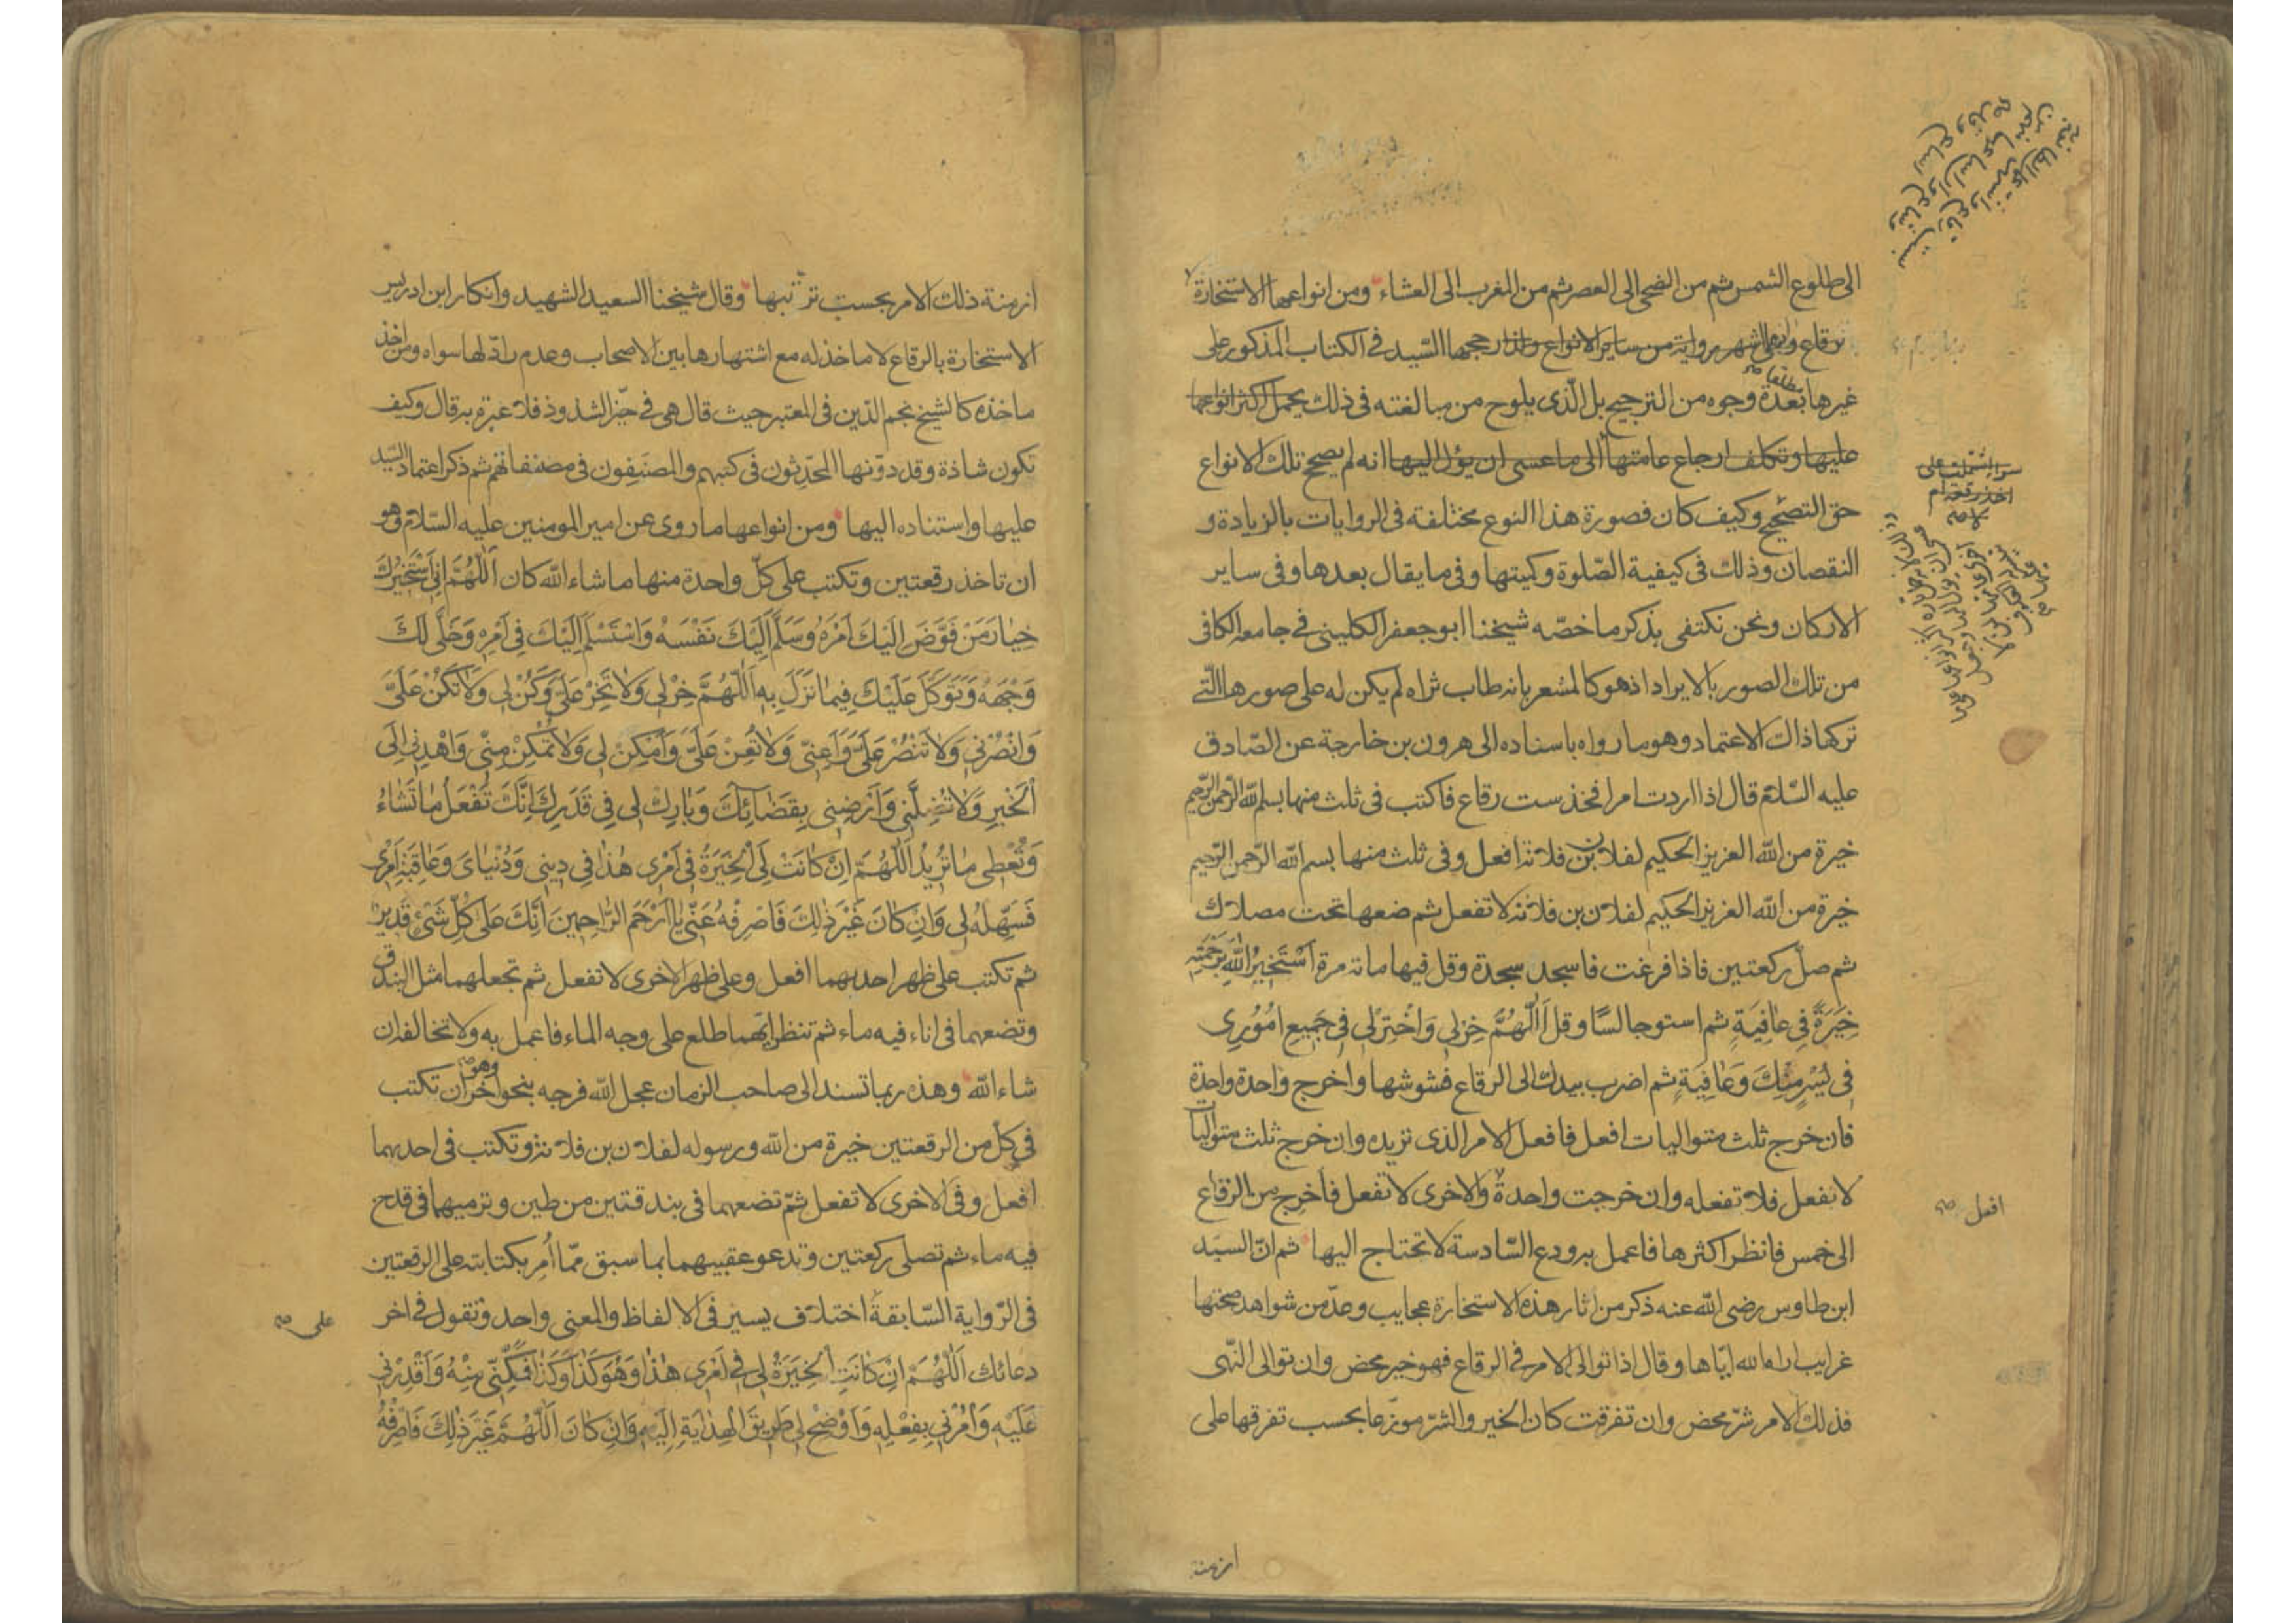 الى طلوع الشمس ثم من الضحى الى العصر ثم من المغرب الى العشاء ومن انواعها الاستخارة
غيرها بعدة وجوه من الترجيح بل الذى يلوح من مبالغته فى ذلك يحمل اكثر انواعها
عليها وتكلف ارجاع عامتها الى ما عسى ان يؤل اليها انه لم يصح تلك الانواع
حق التصحيح وكيف كان فصورة هذا النوع مختلفة فى الروايات بالزيادة و
النقصان وذلك فى كيفية الصلوة وكميتها وفى ما يقال بعدها وفى ساير
الاركان ونحن نكتفى بذكر ما خصّه شيخنا ابو جعفر الكلينى فى جامعه الكافى
من تلك الصور بالايراد اذ هو كالمشعر بانه طاب ثراه لم يكن له على صورها التى
تركها ذاك الاعتماد وهو ما رواه باسناده الى هرون بن خارجة عن الصّادق
عليه السّلام قال اذا اردت امرا فخذ ست رقاع فاكتب فى ثلث منها بسم الله الرّحمن الرّحيم
خيرة من الله العزيز الحكيم لفلان بن فلانة افعل وفى ثلث منها بسم الله الرّحمن الرّحيم
خيرة من الله العزيز الحكيم لفلان بن فلانة لا تفعل ثم ضعها تحت مصلاك
ثم صلّ ركعتين فاذا فرغت فاسجد سجدة وقل فيها مائة مرة اَسْتَخيرُ اللهَ بِرَحْمَتِهِ
خِيَرَةً فى عافِيَةٍ ثم استو جالسًا وقل اَللّهُمَّ خِرْلى وَاخْتَرْلى فى جَميعِ امُورى
فى يُسْرٍ مِنْكَ وَعافِيَةٍ ثم اضرب بيدك الى الرقاع فشوشها واخرج واحدة واحدة
فان خرج ثلث متواليات افعل فافعل الامر الذى تريده وان خرج ثلث متواليات
لا تفعل فلا تفعله وان خرجت واحدة والاخرى لا تفعل فاخرج من الرقاع
الى خمس فانظر اكثرها فاعمل به ودع السّادسة لا تحتاج اليها ثم انّ السيّد
ابن طاوس رضى الله عنه ذكر من اثار هذه الاستخارة عجايب وعدّ من شواهد صحتها
غرايب اراه الله ايّاها وقال اذا توالى الامر فى الرقاع فهو خير محض وان توالى النّهى
فذلك الامر شرّ محض وان تفرقت كان الخير والشرّ موزّعا بحسب تفرقها على
افعل صح
ازمنة
ازمنة ذلك الامر بحسب ترتبها وقال شيخنا السعيد الشهيد وانكار ابن ادريس
الاستخارة بالرقاع لا ماخذ له مع اشتهارها بين الاصحاب وعدم رادّ لها سواه ومن اخذ
ماخذه كالشيخ نجم الدّين فى المعتبر حيث قال هى فى حيّز الشذوذ فلا عبرة به قال وكيف
تكون شاذة وقد دوّنها المحدّثون فى كتبهم والمصنّفون فى مصنفاتهم ثم ذكر اعتماد السّيّد
عليها واستناده اليها ومن انواعها ما روى عن امير المومنين عليه السّلام وهو
ان تاخذ رقعتين وتكتب على كلّ واحدة منها ما شاء الله كان اَللّهُمَّ اِنّى اَسْتَخيرُكَ
خِيارَ مَنْ فَوَّضَ اِلَيْكَ اَمْرَهُ وَسَلَّمَ اِلَيْكَ نَفْسَهُ وَاسْتَسْلَمَ اِلَيْكَ فى اَمْرِهِ وَخَلّى لَكَ
وَجْهَهُ وَتَوَكَّلَ عَلَيْكَ فيما نَزَلَ بِهِ اَللّهُمَّ خِرْلى وَلا تَخِرْ عَلَىَّ وَكُنْ لى وَلا تَكُنْ عَلَىَّ
وَانْصُرْنى وَلا تَنْصُرْ عَلَىَّ وَاَعِنّى وَلا تُعِنْ عَلَىَّ وَاَمْكِنْ لى وَلا تُمْكِنْ مِنّى وَاهْدِنى اِلَى
الْخَيْرِ وَلا تُضِلَّنى وَاَرْضِنى بِقَضائِكَ وَبارِكْ لى فى قَدَرِكَ اِنَّكَ تَفْعَلُ ما تَشاءُ
وَتُعْطى ما تُريدُ اَللّهُمَّ اِنْ كانَتْ لِىَ الْخِيَرَةُ فى اَمْرى هذا فى دينى وَدُنْياىَ وَعاقِبَةِ اَمْرى
فَسَهِّلْهُ لى وَاِنْ كانَ غَيْرَ ذلِكَ فَاصْرِفْهُ عَنّى يا اَرْحَمَ الرّاحِمينَ اِنَّكَ عَلى كُلِّ شَىْءٍ قَديرٌ
ثم تكتب على ظهر احديهما افعل وعلى ظهر الاخرى لا تفعل ثم تجعلهما مثل البندق
وتضعهما فى اناء فيه ماء ثم تنظر ايّهما طلع على وجه الماء فاعمل به ولا تخالف ان
شاء الله وهذه ربما تسند الى صاحب الزمان عجل الله فرجه بنحو اخر وهو ان تكتب
فى كلّ من الرقعتين خيرة من الله ورسوله لفلان بن فلانة وتكتب فى احديهما
افعل وفى الاخرى لا تفعل ثمّ تضعهما فى بندقتين من طين وترميهما فى قدح
فيه ماء ثم تصلى ركعتين وتدعو عقيبهما بما سبق ممّا اُمر بكتابته على الرقعتين
فى الرّواية السّابقة اختلاف يسير فى الالفاظ والمعنى واحد وتقول فى اخر
على صح
دعائك اَللّهُمَّ اِنْ كانَتِ الْخِيَرَةُ لى فى اَمْرى هذا وَهُوَ كَذا وَكَذا فَمَكِّنّى مِنْهُ وَاَقْدِرْنى
عَلَيْهِ وَأْمُرْنى بِفِعْلِهِ وَاَوْضِحْ لى طَريقَ الْهِدايَةِ اِلَيْهِ وَاِنْ كانَ اَللّهُمَّ غَيْرَ ذلِكَ فَاصْرِفْهُ